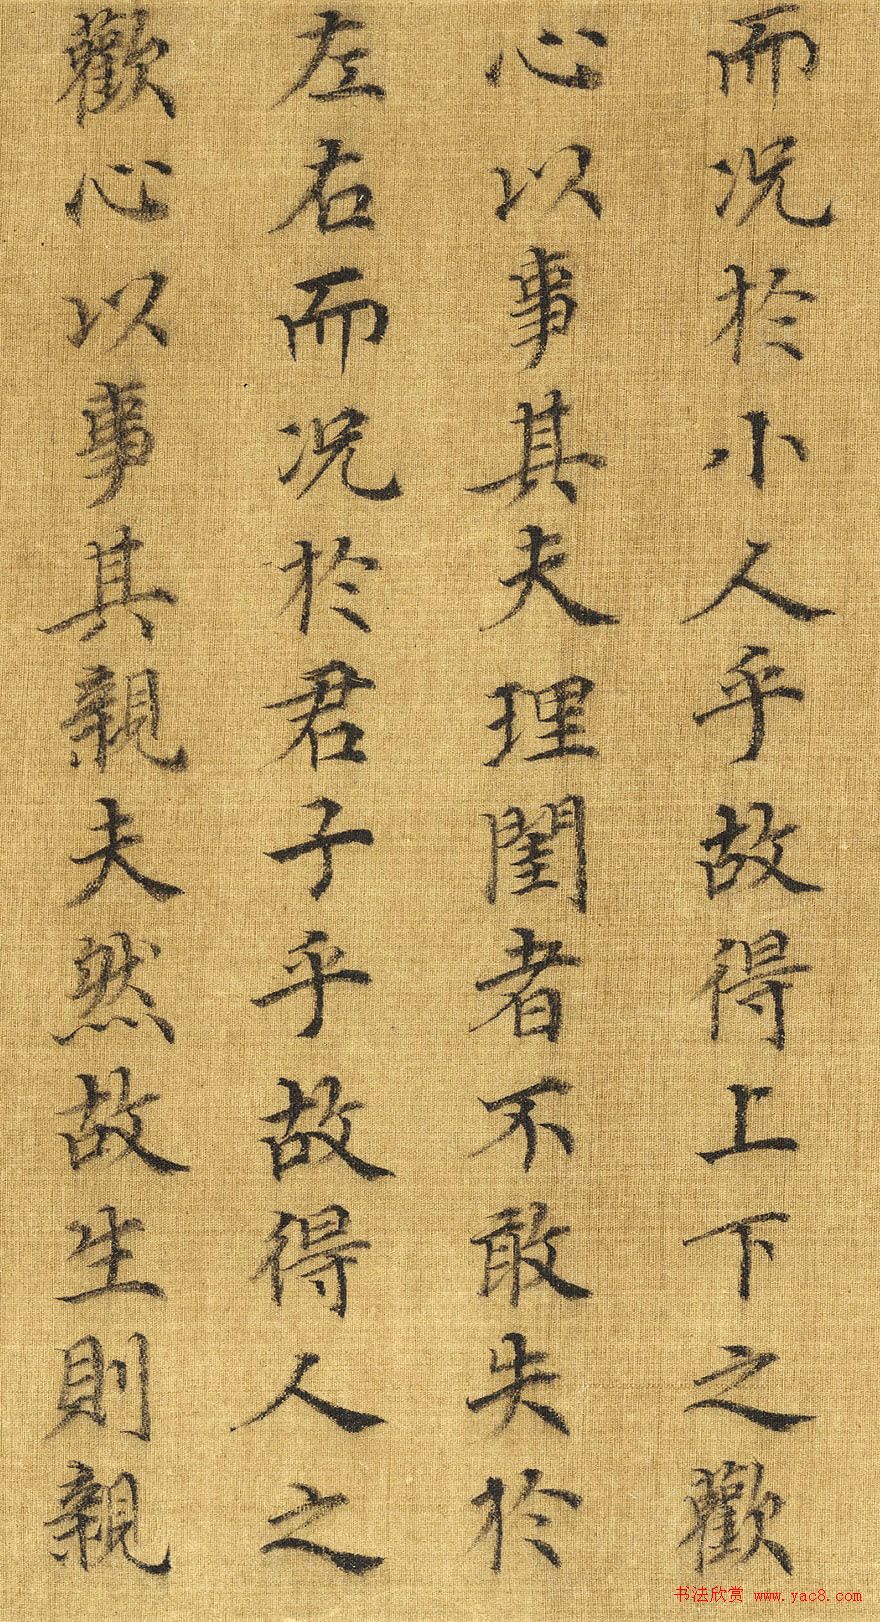 而況於小人乎故得上下之歡
心以事其夫理閨者不敢失於
左右而況於君子乎故得人之
歡心以事其親夫然故生則親
书法欣赏 www.yac8.com